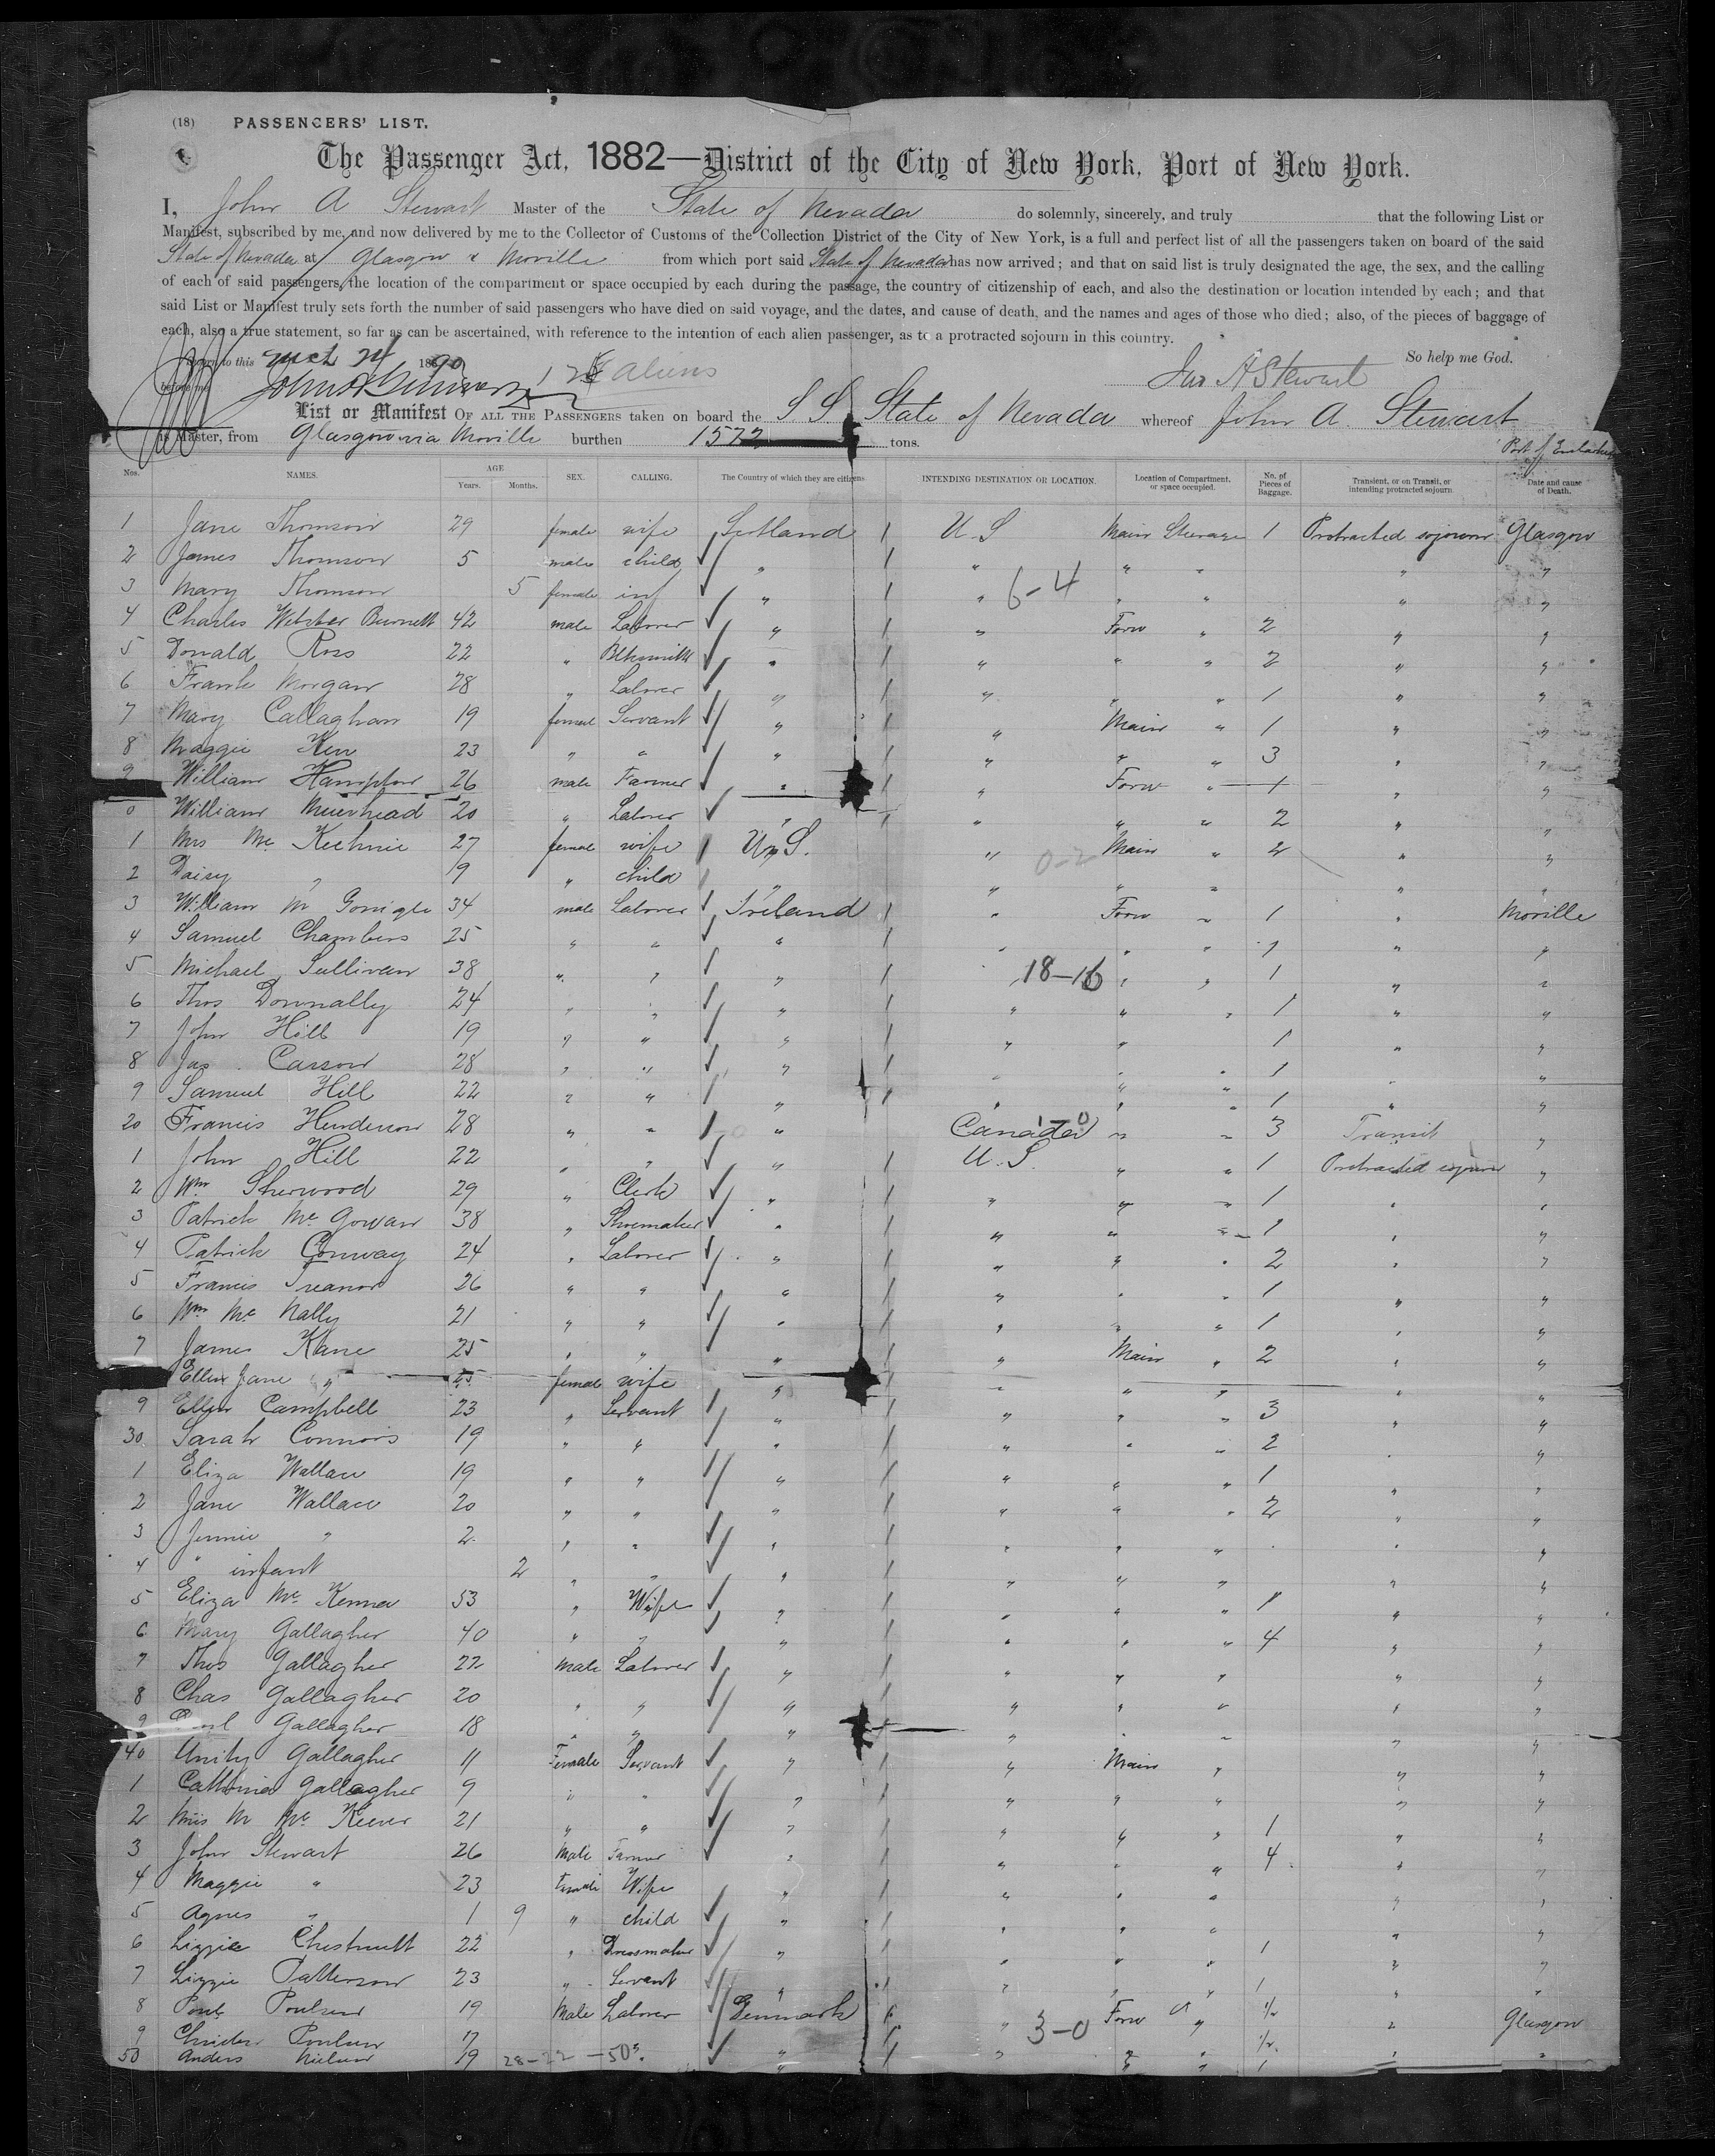 (18) PASSENGERS' LIST.
The Passenger Act, 1882—District of the City of New York, Port of New York.
I, John A Stewart Master of the State of Nevada do solemnly, sincerely, and truly that the following List or
Manifest, subscribed by me, and now delivered by me to the Collector of Customs of the Collection District of the City of New York, is a full and perfect list of all the passengers taken on board of the said
State of Nevada at Glasgow & Moville from which port said State of Nevada has now arrived; and that on said list is truly designated the age, the sex, and the calling
of each of said passengers, the location of the compartment or space occupied by each during the passage, the country of citizenship of each, and also the destination or location intended by each; and that
said List or Manifest truly sets forth the number of said passengers who have died on said voyage, and the dates, and cause of death, and the names and ages of those who died; also, of the pieces of baggage of
each, also a true statement, so far as can be ascertained, with reference to the intention of each alien passenger, as to a protracted sojourn in this country.
to this 1890 So help me God.
before me aliens Jas A Stewart
List or Manifest OF ALL THE PASSENGERS taken on board the S.S. State of Nevada whereof John A. Stewart
is Master, from Glasgow via Moville burthen 1572 tons.
Port of
Nos. NAMES. AGE Years. Months. SEX. CALLING. The Country of which they are citizens. INTENDING DESTINATION OR LOCATION. Location of Compartment, or space occupied. No. of Pieces of Baggage. Transient, or on Transit, or intending protracted sojourn. Date and cause of Death.
1 Jane Thomson 29 female wife Scotland 1 U.S Main Steerage 1 Protracted sojourn Glasgow
2 James Thomson 5 male child " 1 " " " " "
3 Mary Thomson 5 female inf " 1 " 6-4 " " " "
4 Charles Webster Burnett 42 male Laborer " 1 " Forw " 2 " "
5 Donald Ross 22 " Blksmith " 1 " " " 2 " "
6 Frank Morgan 28 " Laborer " 1 " " " 1 " "
7 Mary Callaghan 19 female Servant " 1 " Main " 1 " "
8 Maggie Kerr 23 " " " 1 " " " 3 " "
9 William Hampton 26 male Farmer " 1 " Forw " 1 " "
0 William Muirhead 20 " Laborer " 1 " " " 2 " "
1 Mrs Mc Kechnie 27 female wife U.S. " 0-2 Main " 2 " "
2 Daisy " 9 " child " " " " " "
3 William Mc Gonigle 34 male Laborer Ireland 1 " Forw " 1 " Moville
4 Samuel Chambers 25 " " " 1 " " " 1 " "
5 Michael Sullivan 38 " " " 1 18-16 " " 1 " "
6 Thos Donnally 24 " " " 1 " " " 1 " "
7 John Hill 19 " " " 1 " " 1 " "
8 Jas Carson 28 " " " 1 " " " 1 " "
9 Samuel Hill 22 " " " 1 " " " 1 " "
20 Francis Henderson 28 " " " Canada 1-0 " " 3 Transit "
1 John Hill 22 " " " 1 U.S. " " 1 Protracted sojourn "
2 Wm Sherwood 29 " Clerk " 1 " " " 1 " "
3 Patrick Mc Gowan 38 " Shoemaker " 1 " " " 1 " "
4 Patrick Conway 24 " Laborer " 1 " " " 2 " "
5 Francis Treanor 26 " " " 1 " " " 1 " "
6 Wm Mc Nally 21 " " " 1 " " " 1 " "
7 James Kane 25 " " " 1 " Main " 2 " "
Ellen Jane " female wife " 1 " " " " "
9 Ellen Campbell 23 " Servant " 1 " " " 3 " "
30 Sarah Connors 19 " " " 1 " " " 2 " "
1 Eliza Wallace 19 " " " 1 " " " 1 " "
2 Jane Wallace 20 " " " 1 " " " 2 " "
3 Jennie " 2 " " " 1 " " " " "
4 " infant 2 " " " 1 " " " " "
5 Eliza Mc Kenna 53 " Wife " 1 " " " 1 " "
6 Mary Gallagher 40 " " " 1 " " " 4 " "
7 Thos Gallagher 22 Male Laborer " 1 " " " " "
8 Chas Gallagher 20 " " " 1 " " " " "
9 Gallagher 18 " " " 1 " " " " "
40 Unity Gallagher 11 Female Servant " 1 " Main " " "
1 Gallagher 9 " " " 1 " " " " "
2 Miss M Mc Keever 21 " " " 1 " " " 1 " "
3 John Stewart 26 Male Farmer " 1 " " " 4 " "
4 Maggie " 23 Female Wife " 1 " " " " "
5 Agnes " 1 9 " child " 1 " " " " "
6 Lizzie Chestnutt 22 " Dressmaker " 1 " " " 1 " "
7 Lizzie Patterson 23 " Servant " 1 " " " 1 " "
8 Poulsen 19 Male Laborer Denmark " Forw " 1/2 " Glasgow
9 Poulsen 17 " 1 " 3-0 " " 1/2 " "
50 Anders Nielsen 19 28-22-50. " 1 " " 1 "